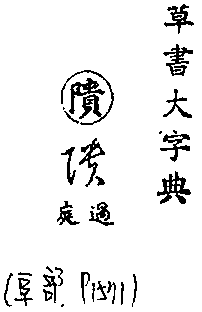 草書大字典
隤
隤
過庭
(阜部. P1571)